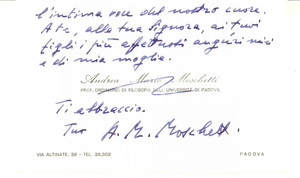 l'intima voce del nostro cuore.
A te, alla tua Signora, ai tuoi
figli i più affettuosi auguri miei
e di mia moglie.
Andrea Mario Moschetti
PROF. ORDINARIO DI FILOSOFIA NELL'UNIVERSITÀ DI PADOVA
Ti abbraccio.
Tuo A. M. Moschetti
VIA ALTINATE, 59 - TEL. 38.503
PADOVA